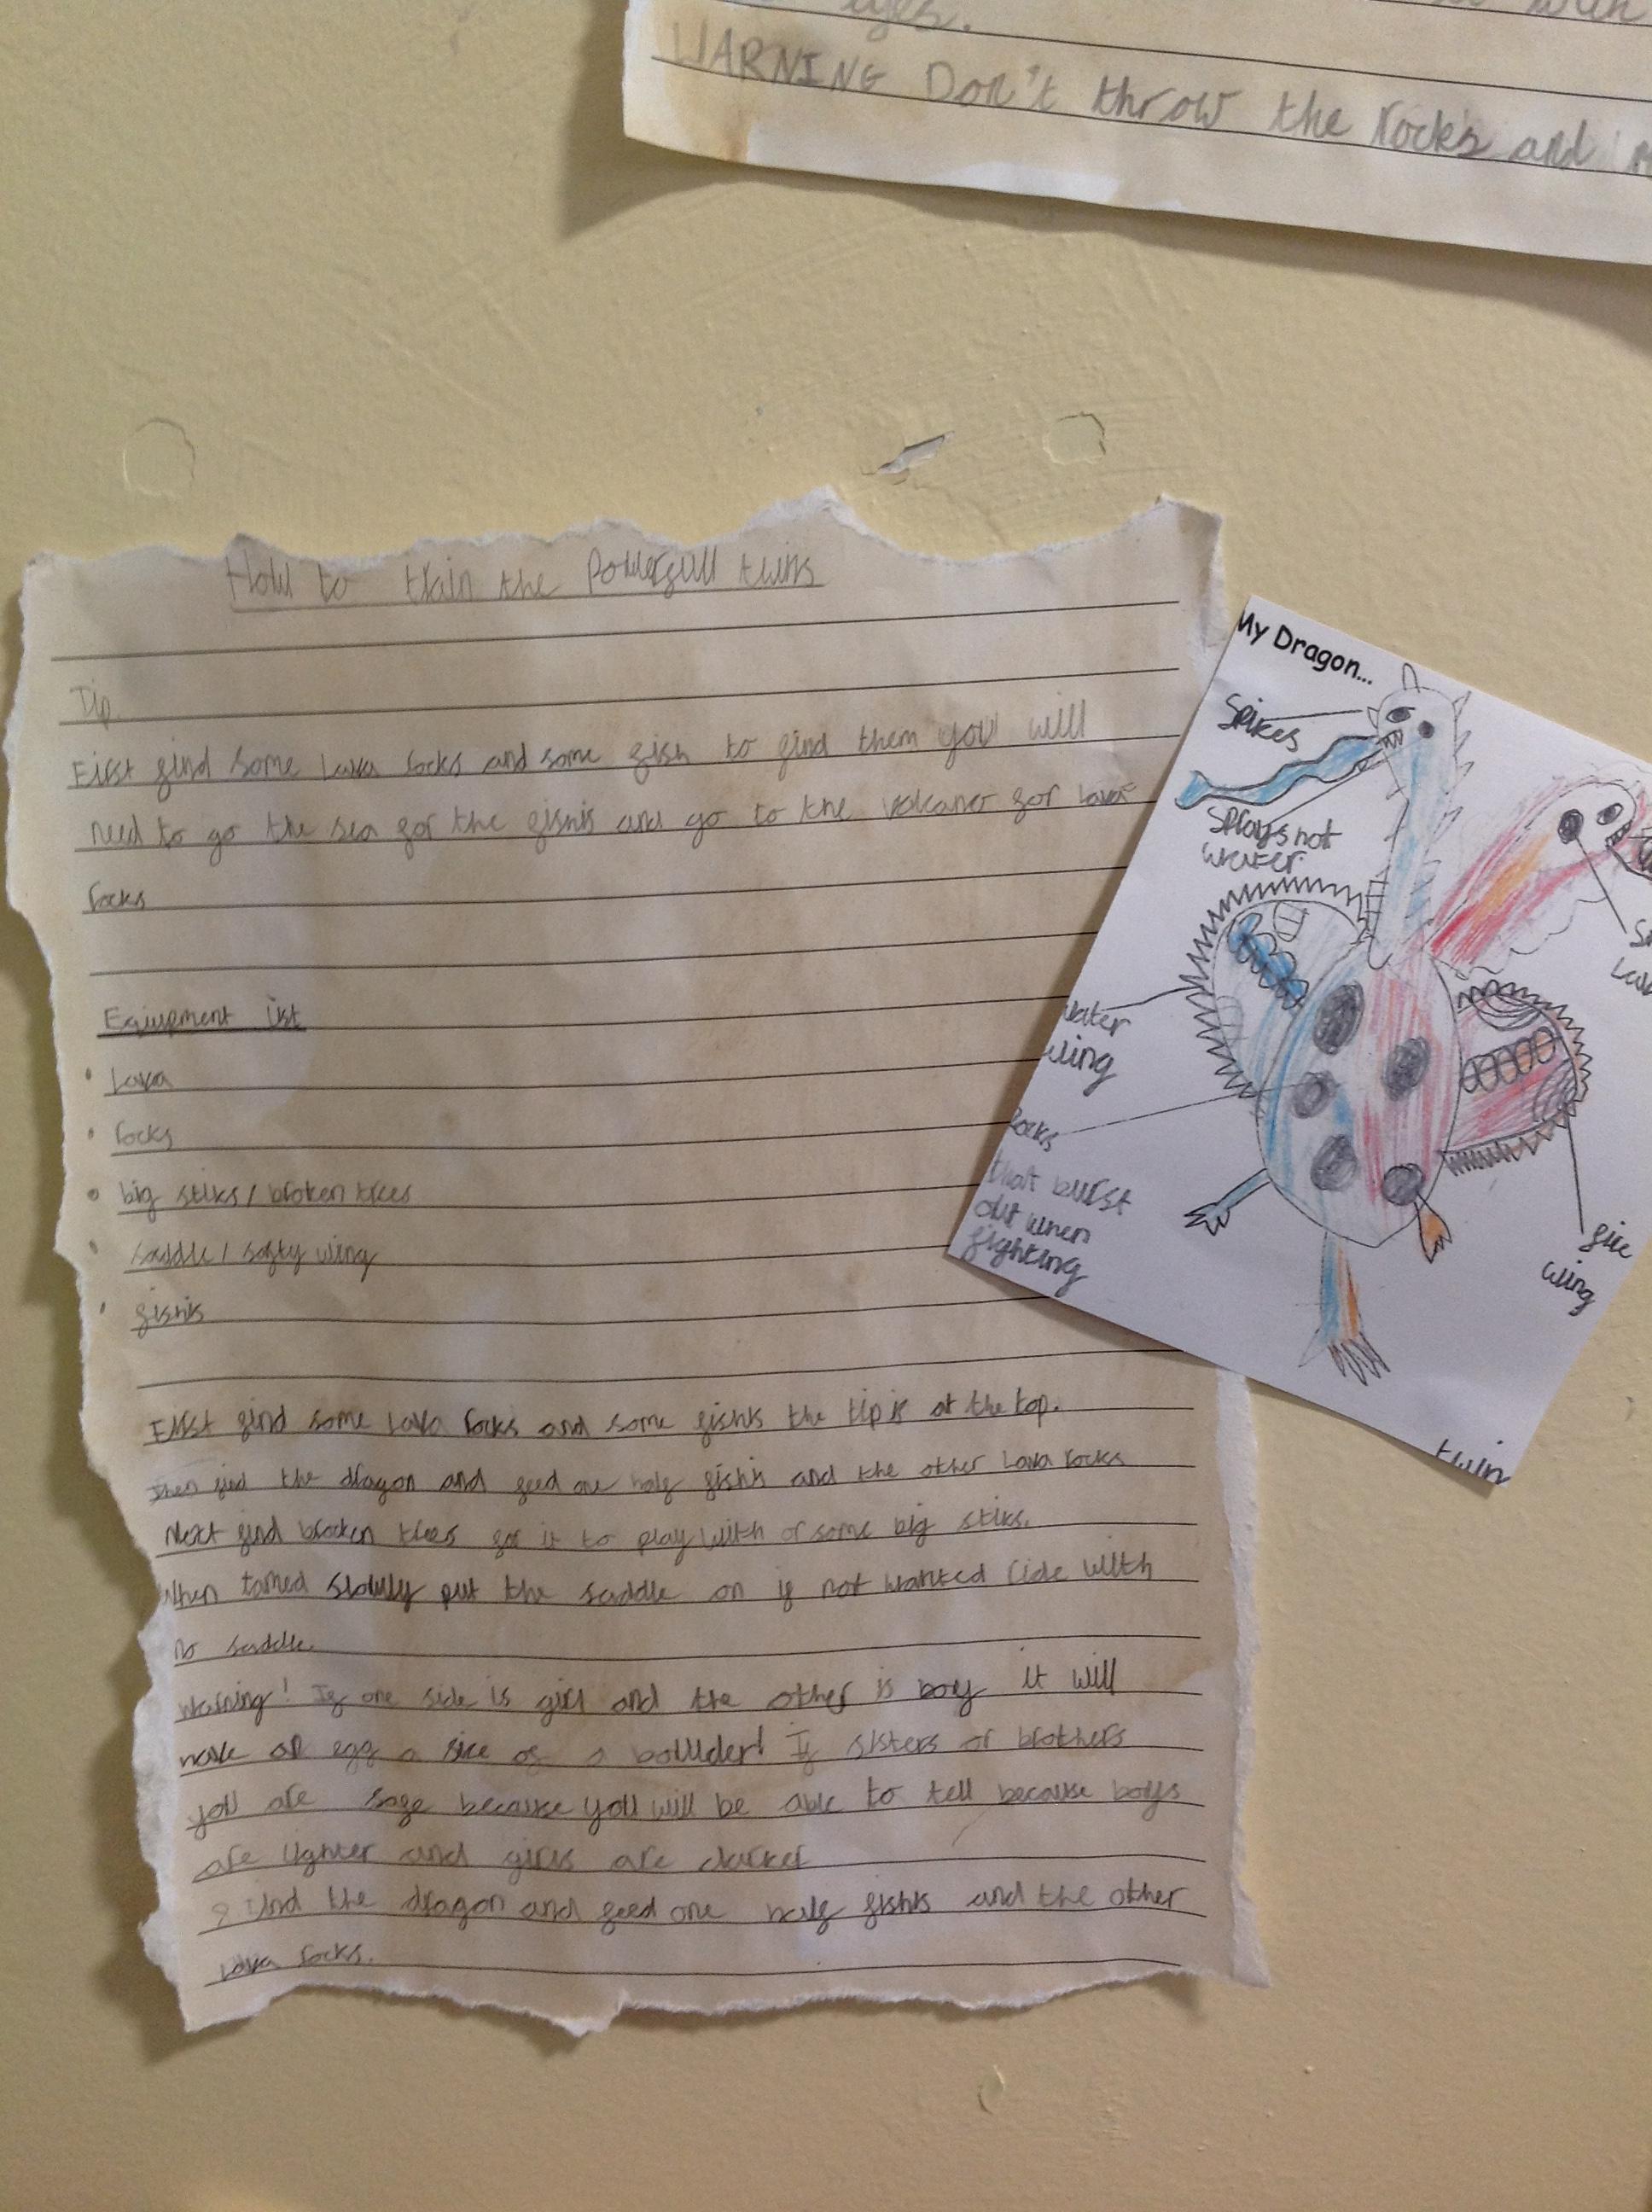 eyes.
WARNING Don't throw the rocks and
How to train the Powerfull twins
Tip
First find some Lava rocks and some fish to find them you will
need to go the sea for the fishis and go to the volcano for lava
rocks
Equipment list
Lava
rocks
big stiks / broken trees
saddle / softy wing
fishis
First find some Lava rocks and some fishis the tip is at the top.
Then find the dragon and feed one half fishis and the other Lava rocks
Next find brocken trees for it to play with or some big stiks.
When tamed slowly put the saddle on if not wanted ride with
no saddle.
Warning! If one side is girl and the other is boy it will
make an egg a size of a boulder! If sisters or brothers
you are safe because you will be able to tell because boys
are lighter and girls are darker
find the dragon and feed one half fishis and the other
Lava rocks.
My Dragon...
Spikes
Sprays hot
water
water
wing
Rocks
that burst
out when
fighting
fire
wing
twin